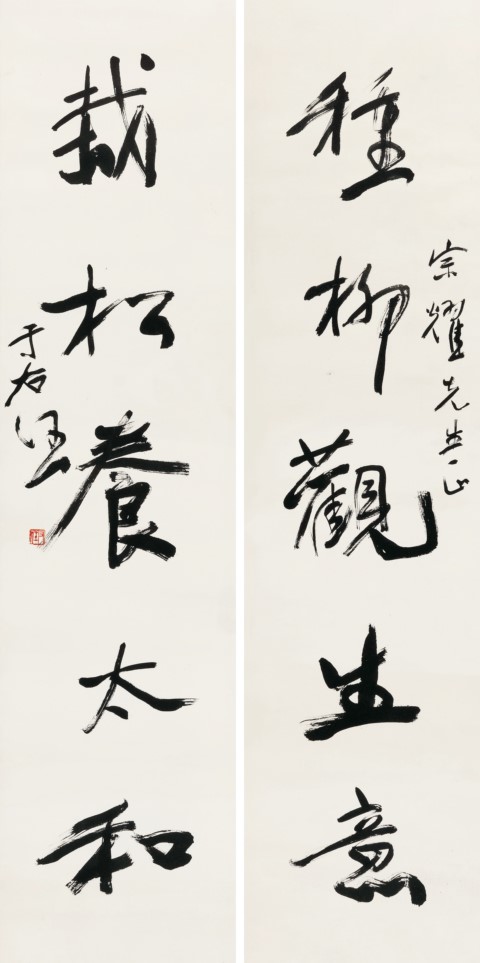 宗耀先生正
種柳觀生意
栽松養太和
于右任